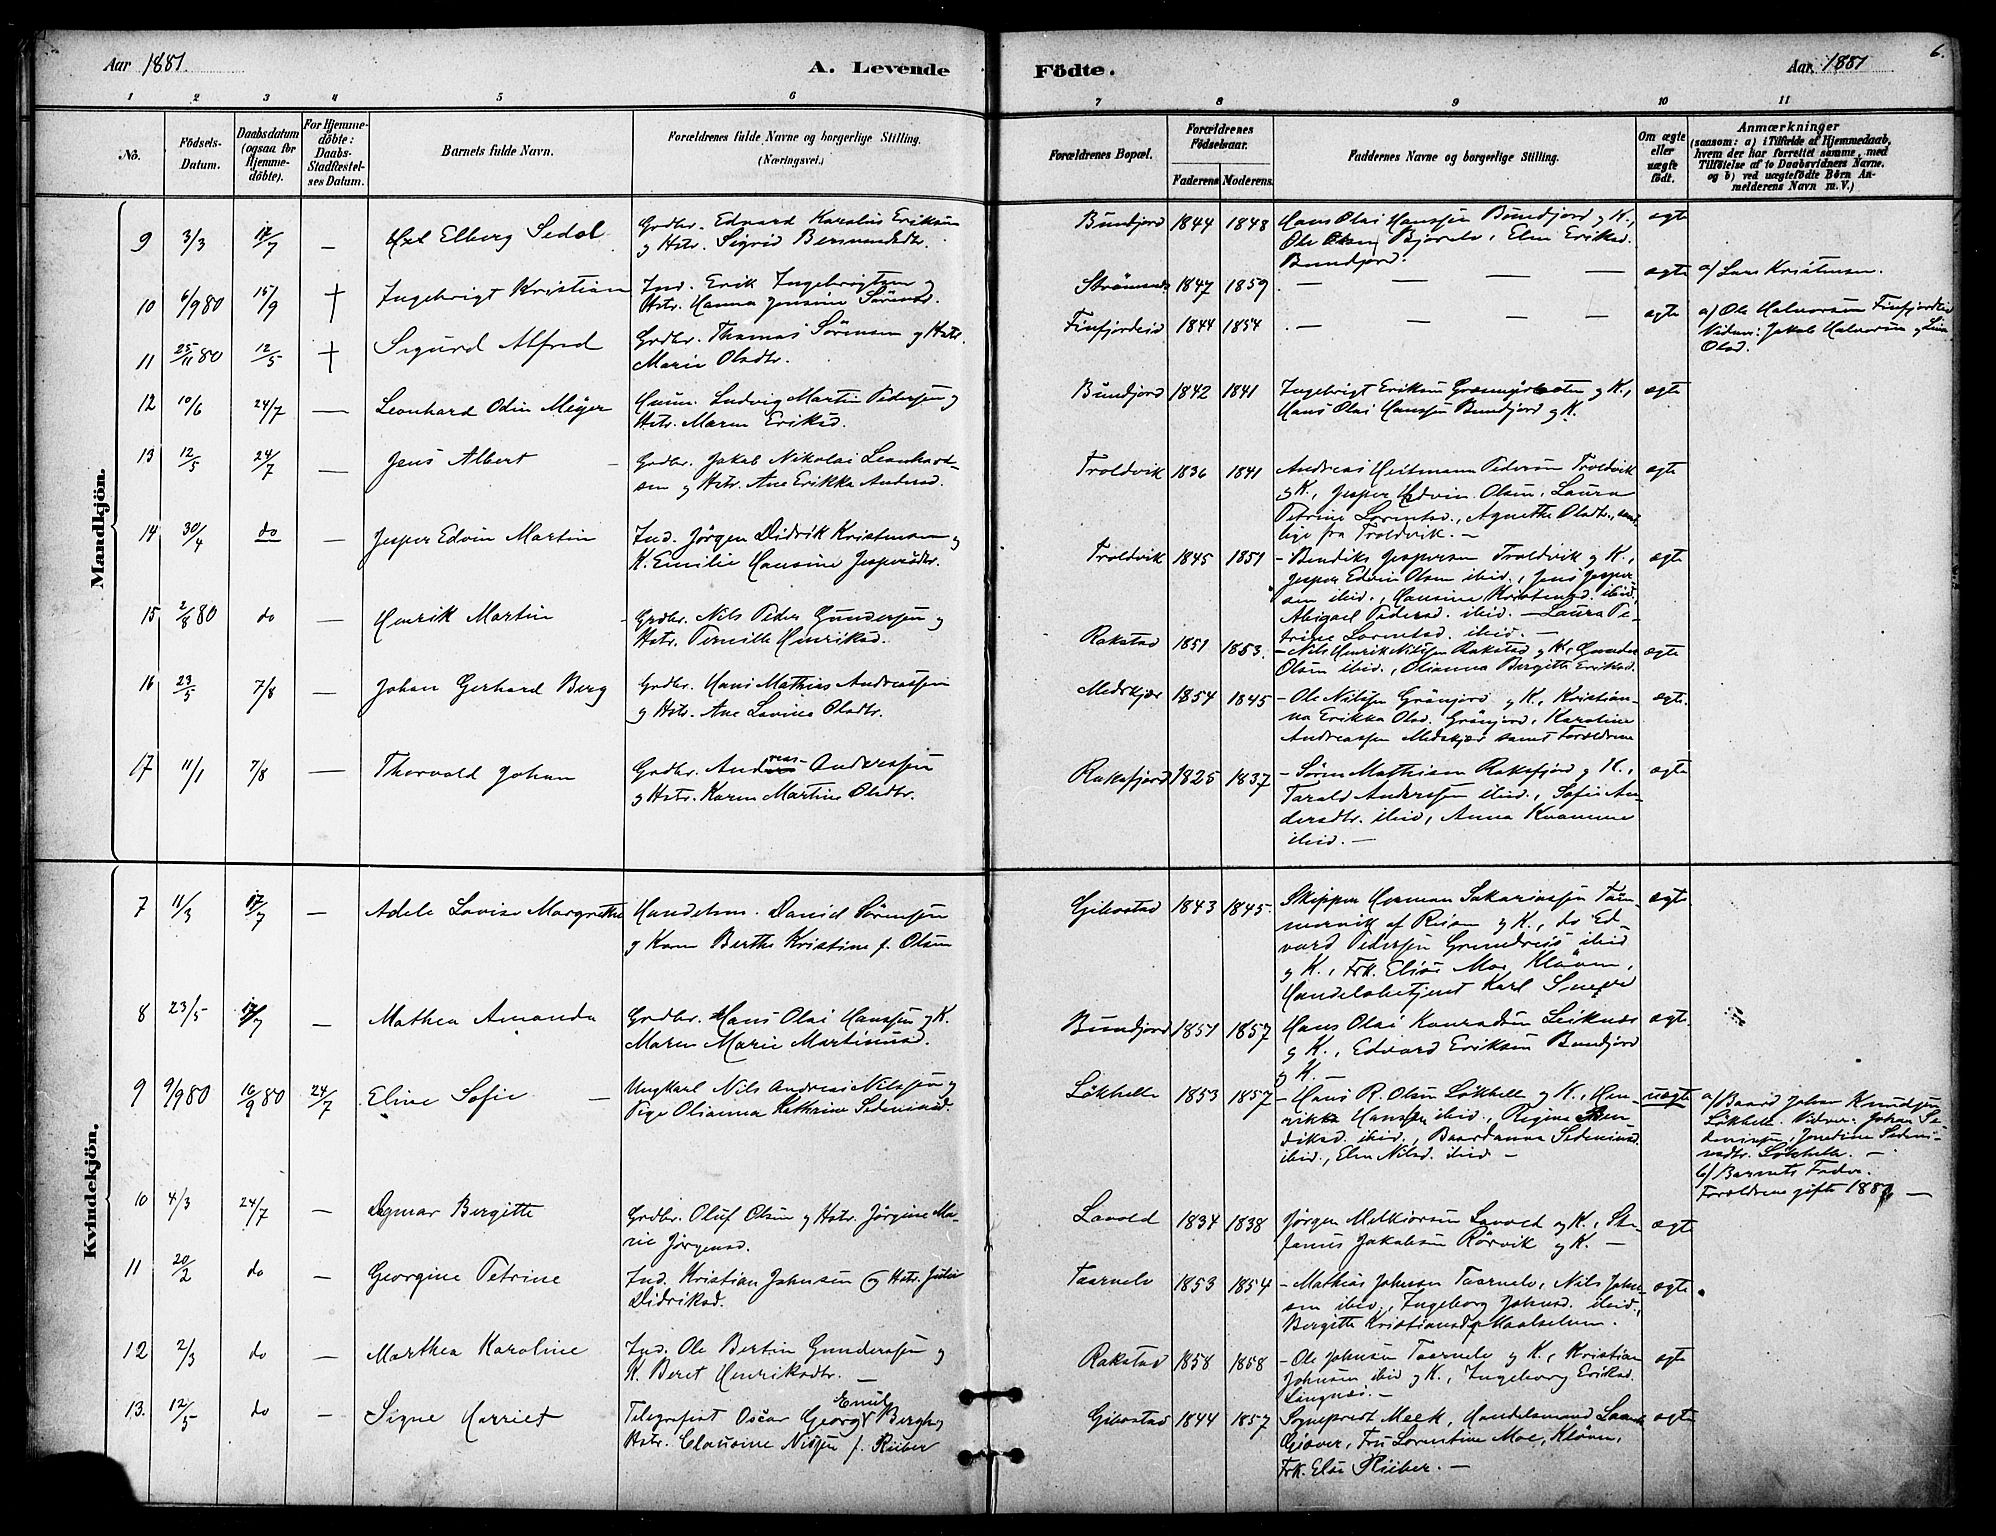 Aar 1881.
A. Levende Födte.
Aar 1881
6.
1 2 3 4 5 6 7 8 9 10 11
No.
Födsels-Datum.
Daabsdatum (ogsaa for Hjemme-döbte).
For Hjemme-döbte: Daabs-Stadfæstel-ses Datum.
Barnets fulde Navn.
Forældrenes fulde Navne og borgerlige Stilling.
(Næringsvei.)
Forældrenes Bopæl.
Forældrenes Födselsaar.
Faderens Moderens.
Faddernes Navne og borgerlige Stilling.
Om ægte eller uægte født.
Anmærkninger
(saasom: a) i Tilfælde af Hjemmedaab, hvem der har forrettet samme, med Tilføielse af to Daabsvidners Navne, og b) ved uægtefödte Börn An-melderens Navn m. V.)
Mandkjön.
9 3/3 17/7 — Axel Elberg Sedol Grdbr. Edvard Karolius Eriksen
g Hstr. Sigrid
Bundjord 1844 1848 Hans Olai Hanssen Bundjord g K.,
Ole Olsen Bjorelv, Elen Eriksd.
Bundjord. ægte
10 6/9 80 15/9 † Ingebrigt Kristian Ind. Erik Ingebrigtsen g
Hstr. Hanna Jensine Sörensd.
Strömsnes 1847 1859 — — — — ægte a/ Lars Kristensen.
11 25/11 80 12/5 † Sigurd Alfred Grdbr. Thomas Sörensen g Hstr.
Marie Olsdtr.
Finfjordeid 1844 1854 — — — — ægte a/ Ole Halvorsen Finfjordeid
Vidner: Jakob Halvorsen g
Olsd.
12 10/6 24/7 — Leonhard Odin Meyer Husm. Ludvig Martin Pedersen g
Hstr. Maren Eriksd.
Bundjord 1842 1841 Ingebrigt Eriksen g K.,
Hans Olai Hanssen Bundjord g K. ægte
13 12/5 24/7 — Jens Albert Grdbr. Jakob Nikolai Leonhard-
sen g Hstr. Ane Erikka Andersd.
Troldvik 1836 1841 Andreas Heitmann Pedersen Troldvik
g K., Jesper Edvin Olsen, Laura
Petrine Lorentsd., Agnethe Olsdtr., sam-
lige fra Troldvik. — ægte
14 30/4 do — Jesper Edvin Martin Ind. Jörgen Didrik Kristensen g
K. Emilie Hansine Jespersdtr.
Troldvik 1845 1851 — Bendiks Jespersen Troldvik g K.,
Jesper Edvin Olsen ibid., Jens Jesper-
sen ibid., Hansine Kristensd. ibid,
Abigael Pedersd. ibid. — Laura Pe-
trine Lorentsd. ibid. — ægte
15 2/8 80 do — Henrik Martin Grdbr. Nils Peder Gundersen g
Hstr. Pernille Henriksd.
Rakstad 1851 1853. — Nils Henrik Nilsen Rakstad g K., Gunder
Olsen ibid., Olianna Bergitte Eriksd. ægte
16 23/5 7/8 — Johan Gerhard Berg Grdbr. Hans Mathias Andreassen
g Hstr. Ane Lovise Olsdtr.
Medskjær 1854 1845 — Ole Nilsen Grönjord g K., Kristian-
na Erikka Olsd. Grönjord, Karoline
Andreassen Medskjær samt Forældrene ægte.
17 11/1 7/8 — Thorvald Johan Grdbr. Andreas Andersen
g Hstr. Karen Martine Olsdtr.
Raksfjord 1825 1837 — Sören Mathisen Raksfjord g K.,
Tarald Anderssen ibid., Sofie An-
dersdtr. ibid, Anna Kvamme
ibid. — ægte
Kvindekjön.
7 11/3 17/7 — Adele Lovise Margrethe Handelsm. David Sörensen
g Kone Berthe Kristine f. Olsen
Gibostad 1843 1845. Skipper Herman Sakariassen Töm-
mervik af g K., do Ed-
vard Pedersen ibid
g K., Frk. Elise Moe Klöven,
Handelsbetjent Karl ægte
8 23/5 17/7 — Mathea Amanda Grdbr. Hans Olai Hanssen g K.
Maren Marie Martinusd.
Bundjord 1851 1857 Hans Olai Konradsen Leiknes
g K., Edvard Eriksen Bundjord
g K. — ægte.
9 9/9 80 10/9 80 24/7 Eline Sofie — Ungkarl Nils Andreas Nilssen g
Pige Olianna Kathrine Sedeniusd.
Lökhelle 1853 1857 — Hans R. Olsen Lökhelle g K., Hen-
rikke Hanssen ibid., Regine Ben-
diksd. ibid., Baardanna Sedeniusd.
ibid., Elen Nilsd. ibid — uægte a/ Baard Johan Knudsen
Lökhelle. Vidner: Johan Se-
deniussen, Jonetine Sedeni-
usdtr. Lökhelle. —
b/ Barnets Fader.
Forældrene gifte 188 —
10 4/3 24/7 — Dagmar Bergitte Grdbr. Oluf Olsen g Hstr. Jörgine Ma-
rie Jörgensd.
Lavold 1834 1838 Jörgen Melkiorsen Lavold g K., Ste-
fanus Jakobsen Rörvik g K. — ægte
11 20/2 do — Georgine Petrine Ind. Kristian Johnsen g Hstr. Julie
Didriksd.
Taarnelv 1853 1854 — Mathias Johnsen Taarnelv, Nils John-
sen ibid., Ingeborg Johnsd. ibid.,
Bergitte Kristiansd. Maalselven. ægte
12 2/3 do — Marthea Karoline Ind. Ole Bertin Gunderssen g
K. Beret Henriksdtr. —
Rakstad 1858 1858 — Ole Johnsen Taarnelv g K., Kristian
Johnsen ibid g K., Ingeborg Eriksd.
Lingnes. — ægte
13. 12/5 do — Signe Harriet Telegrafist Oscar Georg Emil Bergh g
Hstr. Clausine Nissen f. Rieber
Gibostad 1844 1857 Sogneprest Meek, Handelsmand
Giæver, Fru Lorentine Moe, Klöven,
Frk. Elise Rieber. — ægte